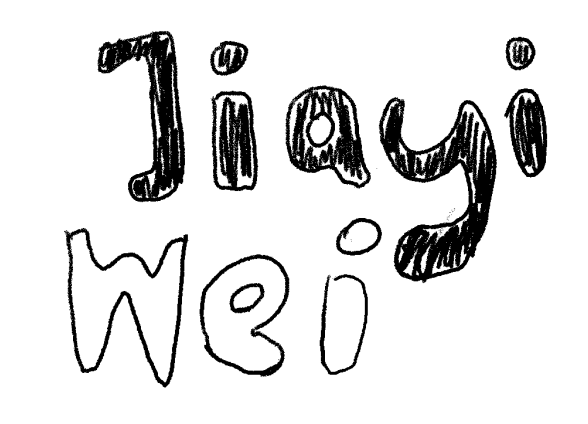 Jiayi
Wei